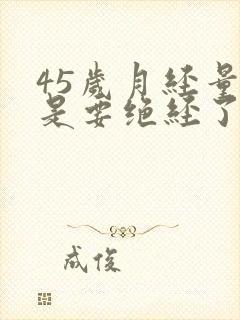 45歲月经量
是要绝经了
成俊